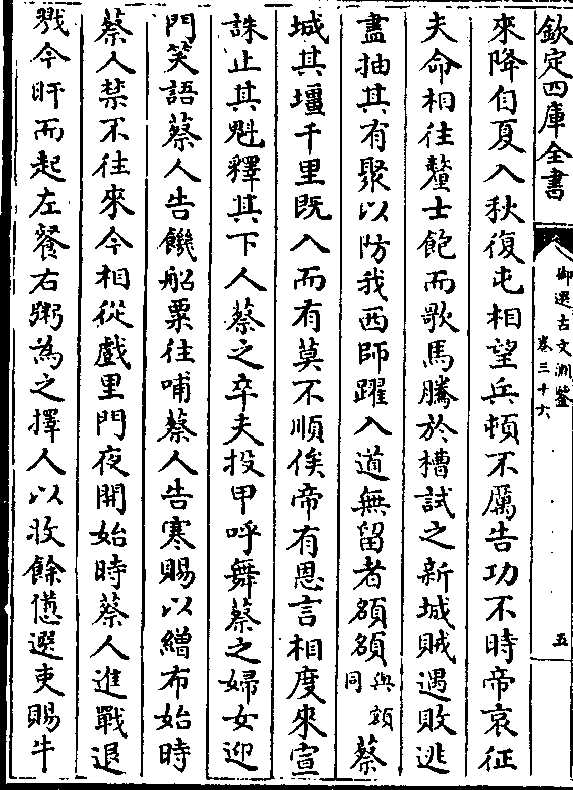 欽定四庫全書
御選古文淵鑒
卷三十六
五
來降自夏入秋復屯相望兵頓不厲告功不時帝哀征
夫命相往釐士飽而歌馬騰於槽試之新城賊遇敗逃
盡抽其有聚以防我西師躍入道無留者頟頟與額同蔡
城其壃千里既入而有莫不順俟帝有恩言相度來宣
誅止其魁釋其下人蔡之卒夫投甲呼舞蔡之婦女迎
門笑語蔡人告饑船粟往哺蔡人告寒賜以繒布始時
蔡人禁不往來今相從戲里門夜開始時蔡人進戰退
戮今旰而起左餐右粥為之擇人以收餘憊選吏賜牛